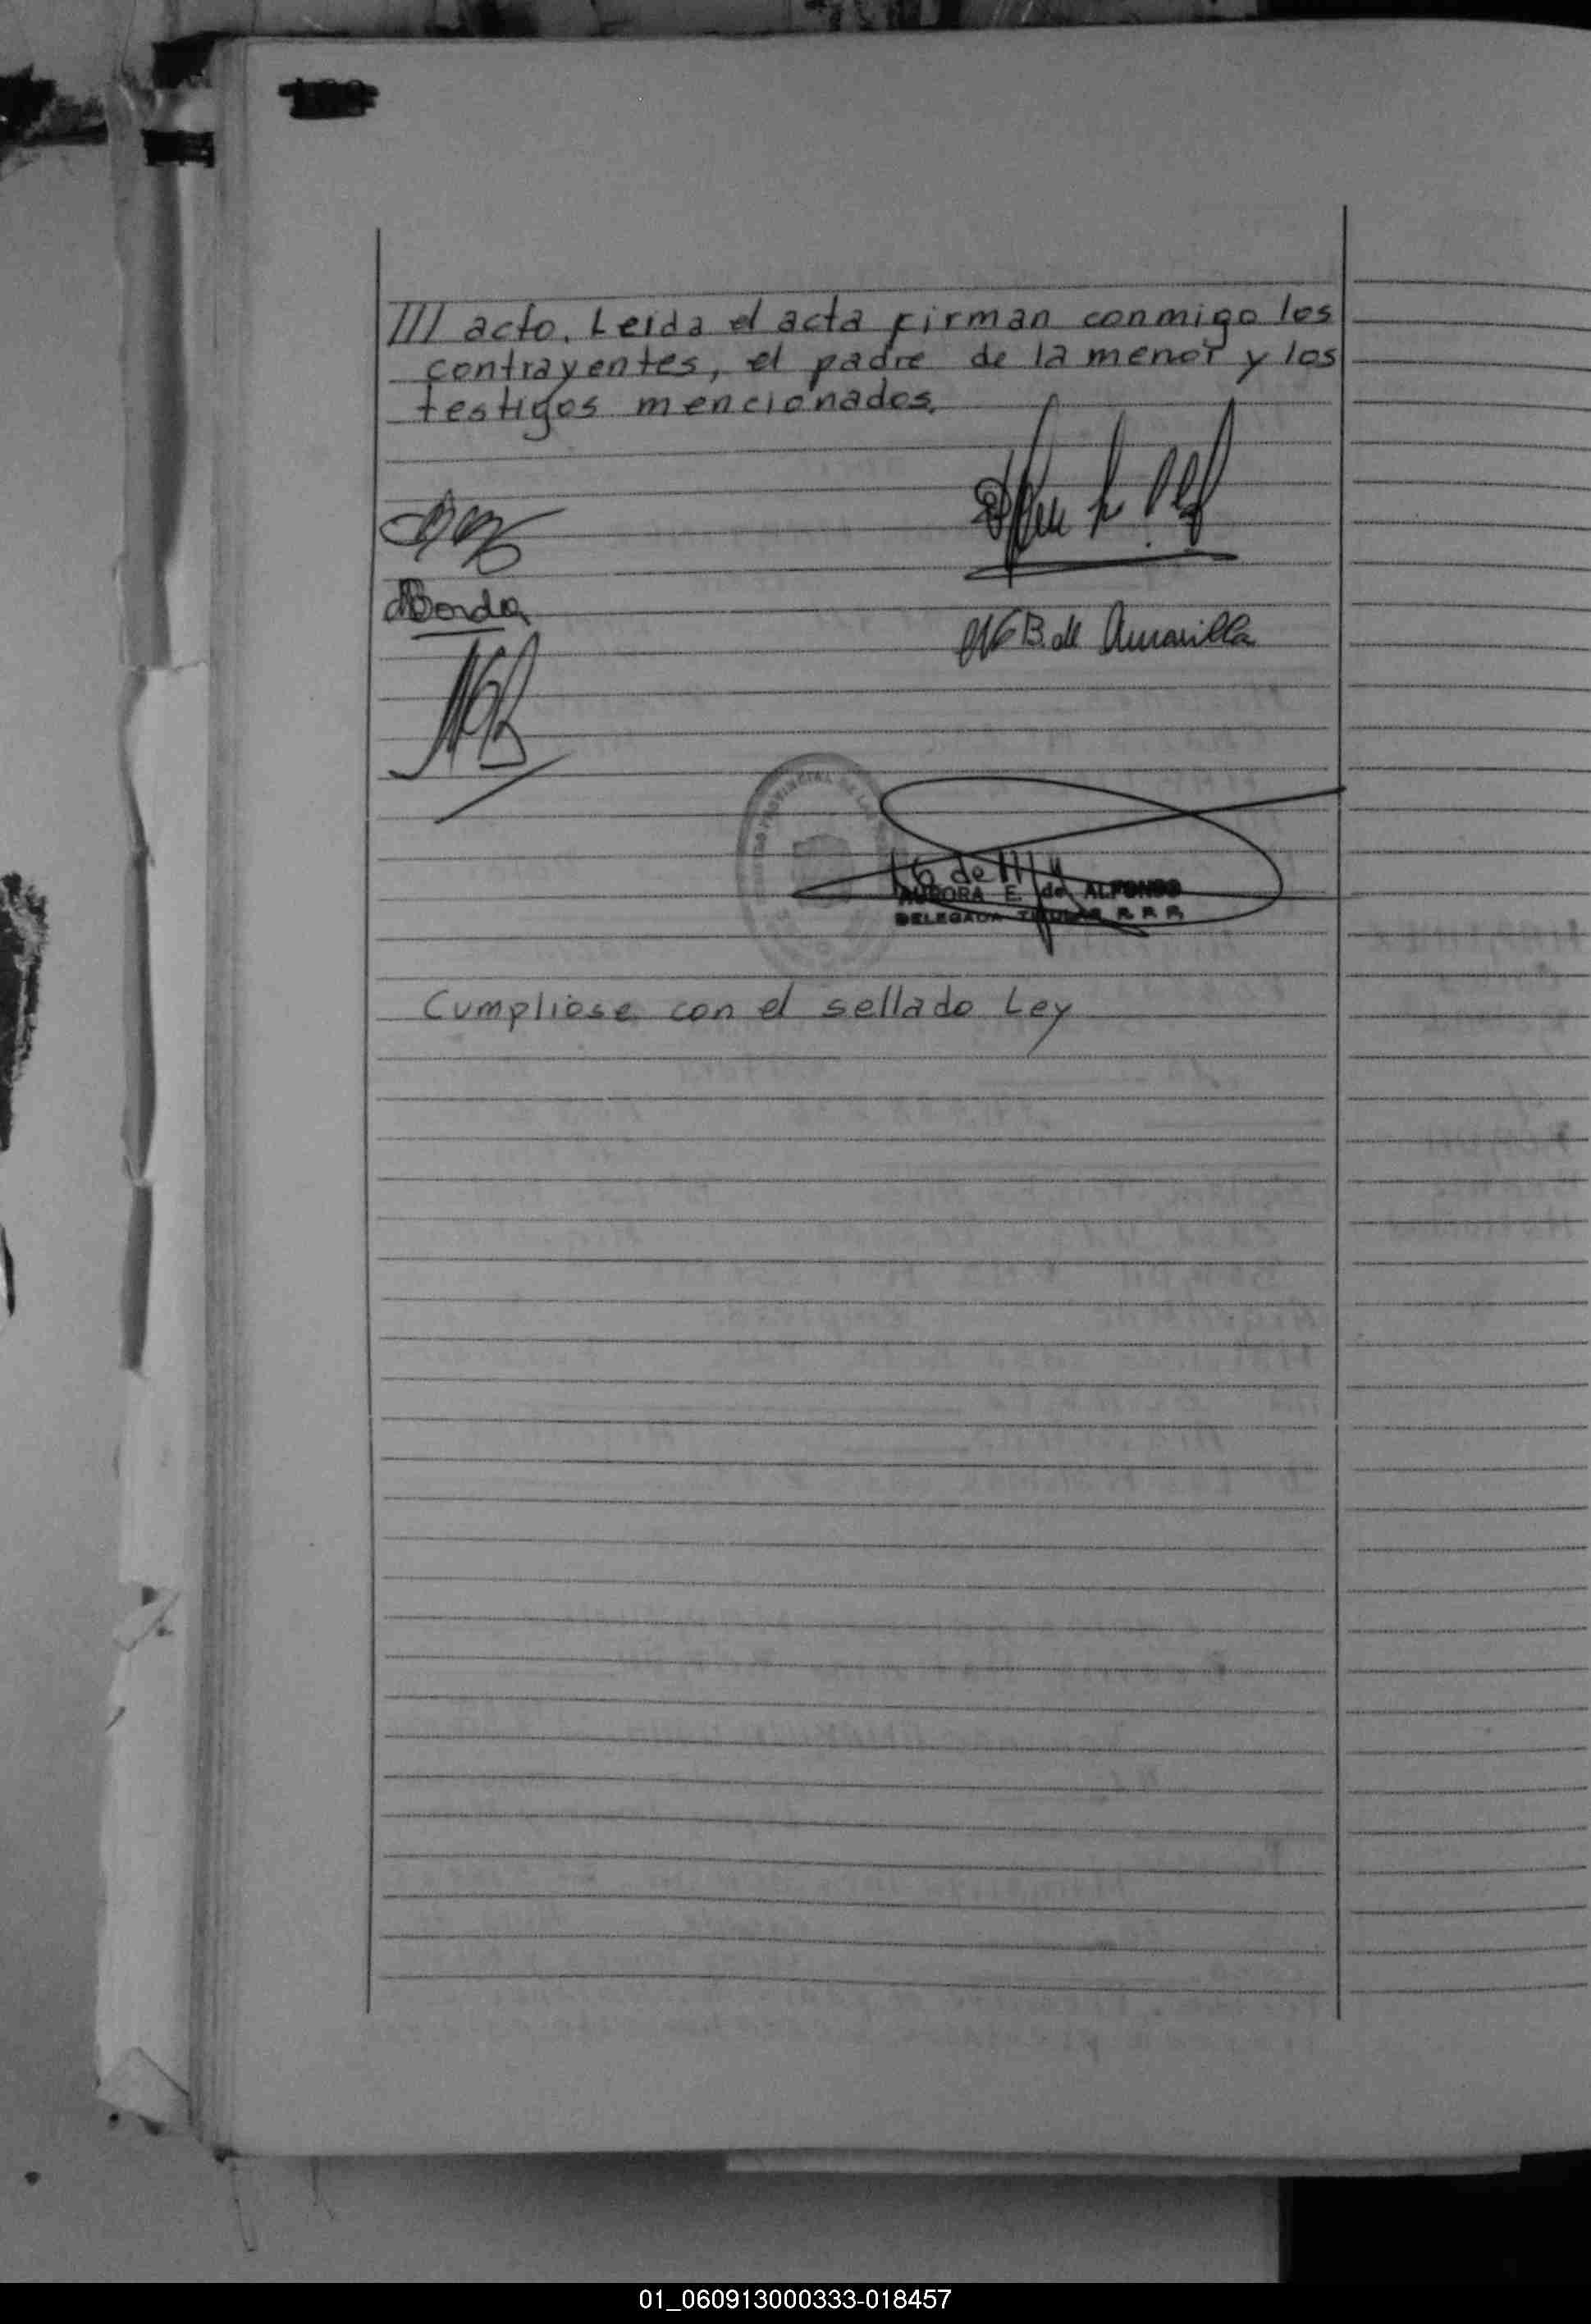 /// acto. Leida el acta firman conmigo los
contrayentes, el padre de la menor y los
testigos mencionados.
ABorda
B. de Amarilla
PROVINCIAL DE LA
AURORA E. de ALFONSO
DELEGADA TITULAR R. P. P.
Cumpliose con el sellado Ley
01_060913000333-018457